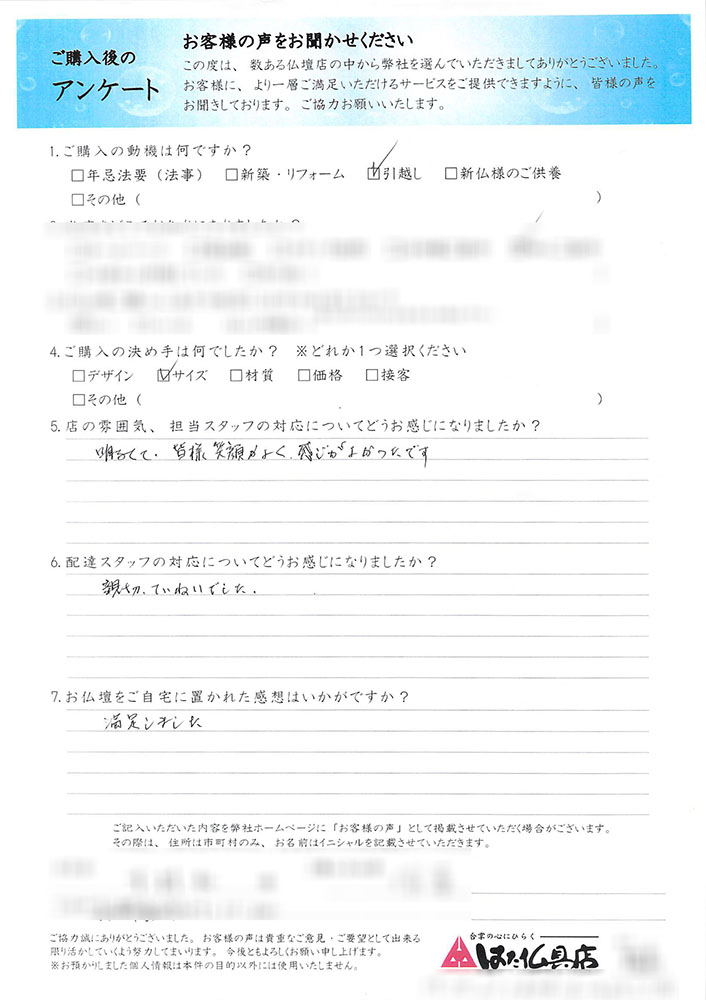 ご購入後の
アンケート
お客様の声をお聞かせください
この度は、数ある仏壇店の中から弊社を選んでいただきましてありがとうございました。
お客様に、より一層ご満足いただけるサービスをご提供できますように、皆様の声を
お聞きしております。ご協力お願いいたします。
1.ご購入の動機は何ですか？
□年忌法要（法事） □新築・リフォーム ☑引越し □新仏様のご供養
□その他（ ）
4.ご購入の決め手は何でしたか？ ※どれか1つ選択ください
□デザイン ☑サイズ □材質 □価格 □接客
□その他（ ）
5.店の雰囲気、担当スタッフの対応についてどうお感じになりましたか？
明るくて、皆様笑顔がよく、感じがよかったです
6.配達スタッフの対応についてどうお感じになりましたか？
親切、ていねいでした。
7.お仏壇をご自宅に置かれた感想はいかがですか？
満足しました
ご記入いただいた内容を弊社ホームページに「お客様の声」として掲載させていただく場合がございます。
その際は、住所は市町村のみ、お名前はイニシャルを記載させていただきます。
ご協力誠にありがとうございました。お客様の声は貴重なご意見・ご要望として出来る
限り活かしていくよう努力してまいります。今後ともよろしくお願い申し上げます。
※お預かりしました個人情報は本件の目的以外には使用いたしません。
合掌の心にひらく
はた仏具店